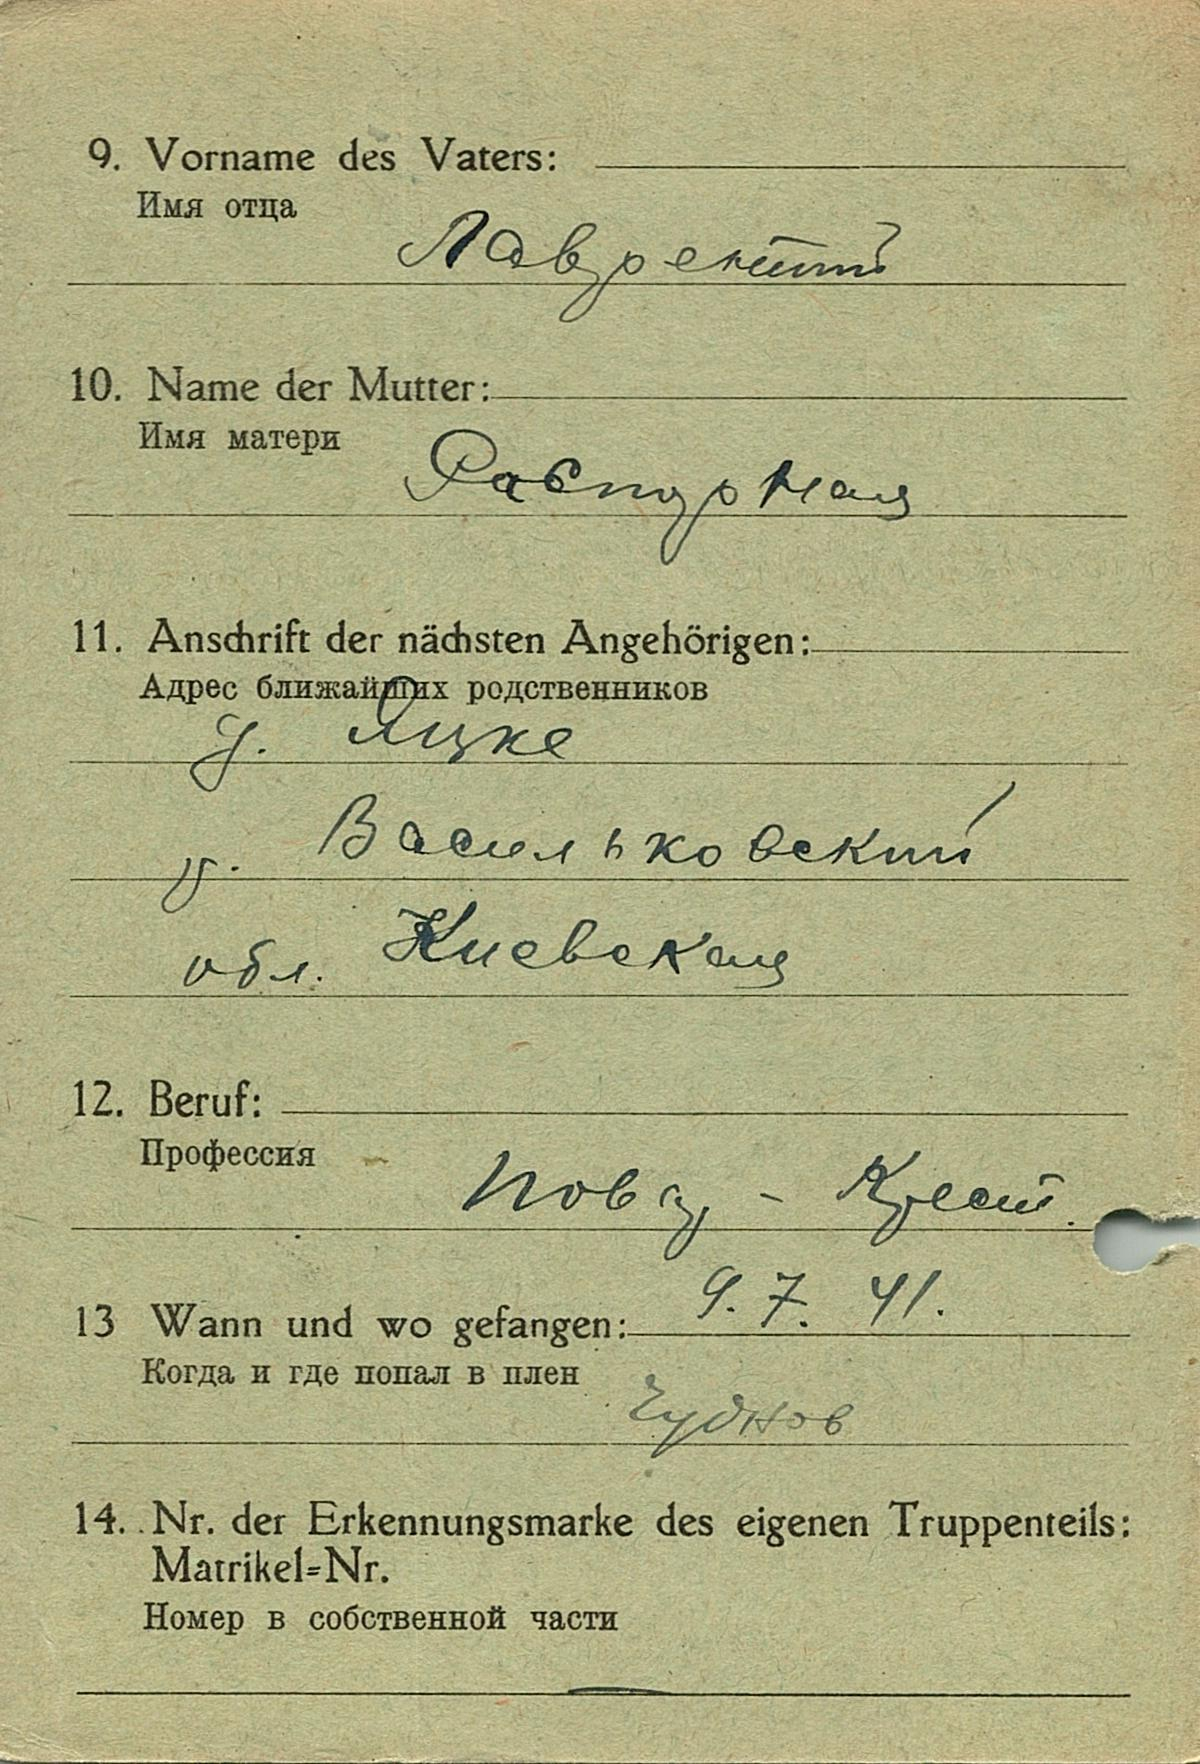 9. Vorname des Vaters:
Имя отца
Лаврентий
10. Name der Mutter:
Имя матери
11. Anschrift der nächsten Angehörigen:
Адрес ближайших родственников
д. Яцке
р. Васильковский
обл. Киевская
12. Beruf:
Профессия
Повар - Крест.
13 Wann und wo gefangen: 9. 7. 41.
Когда и где попал в плен
Чуднов
14. Nr. der Erkennungsmarke des eigenen Truppenteils:
Matrikel=Nr.
Номер в собственной части